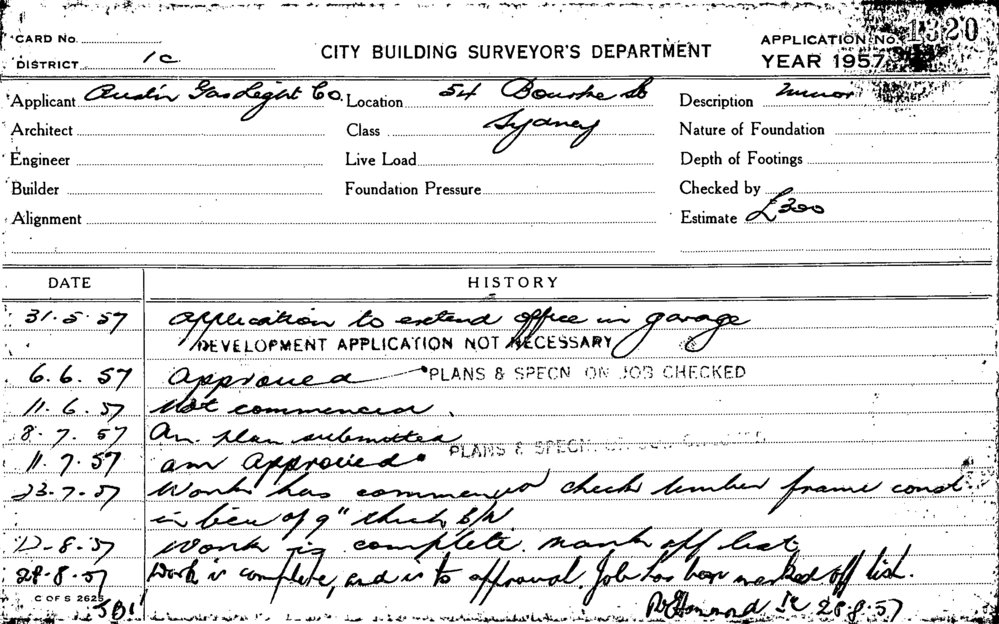 CARD No.
DISTRICT 1c
CITY BUILDING SURVEYOR'S DEPARTMENT
APPLICATION No. 1320
YEAR 1957
Applicant Austin Gas Light Co. Location 54 Bourke St Description Minor
Architect Class Sydney Nature of Foundation
Engineer Live Load Depth of Footings
Builder Foundation Pressure Checked by
Alignment Estimate £300
DATE HISTORY
31.5.57 Application to extend office in garage
DEVELOPMENT APPLICATION NOT NECESSARY
6.6.57 Approved PLANS & SPECN ON JOB CHECKED
11.6.57 Not commenced.
8.7.57 Am. plan submitted
11.7.57 am Approved PLANS & SPECN. ON JOB
23.7.57 Work has commenced check timber frame const.
in lieu of 9" thick B/W
12-8-57 Work is complete. mark off list
28-8-57 Work is complete, and is to approval. Job has been marked off list.
C OF S 2625
1c 28.8.57